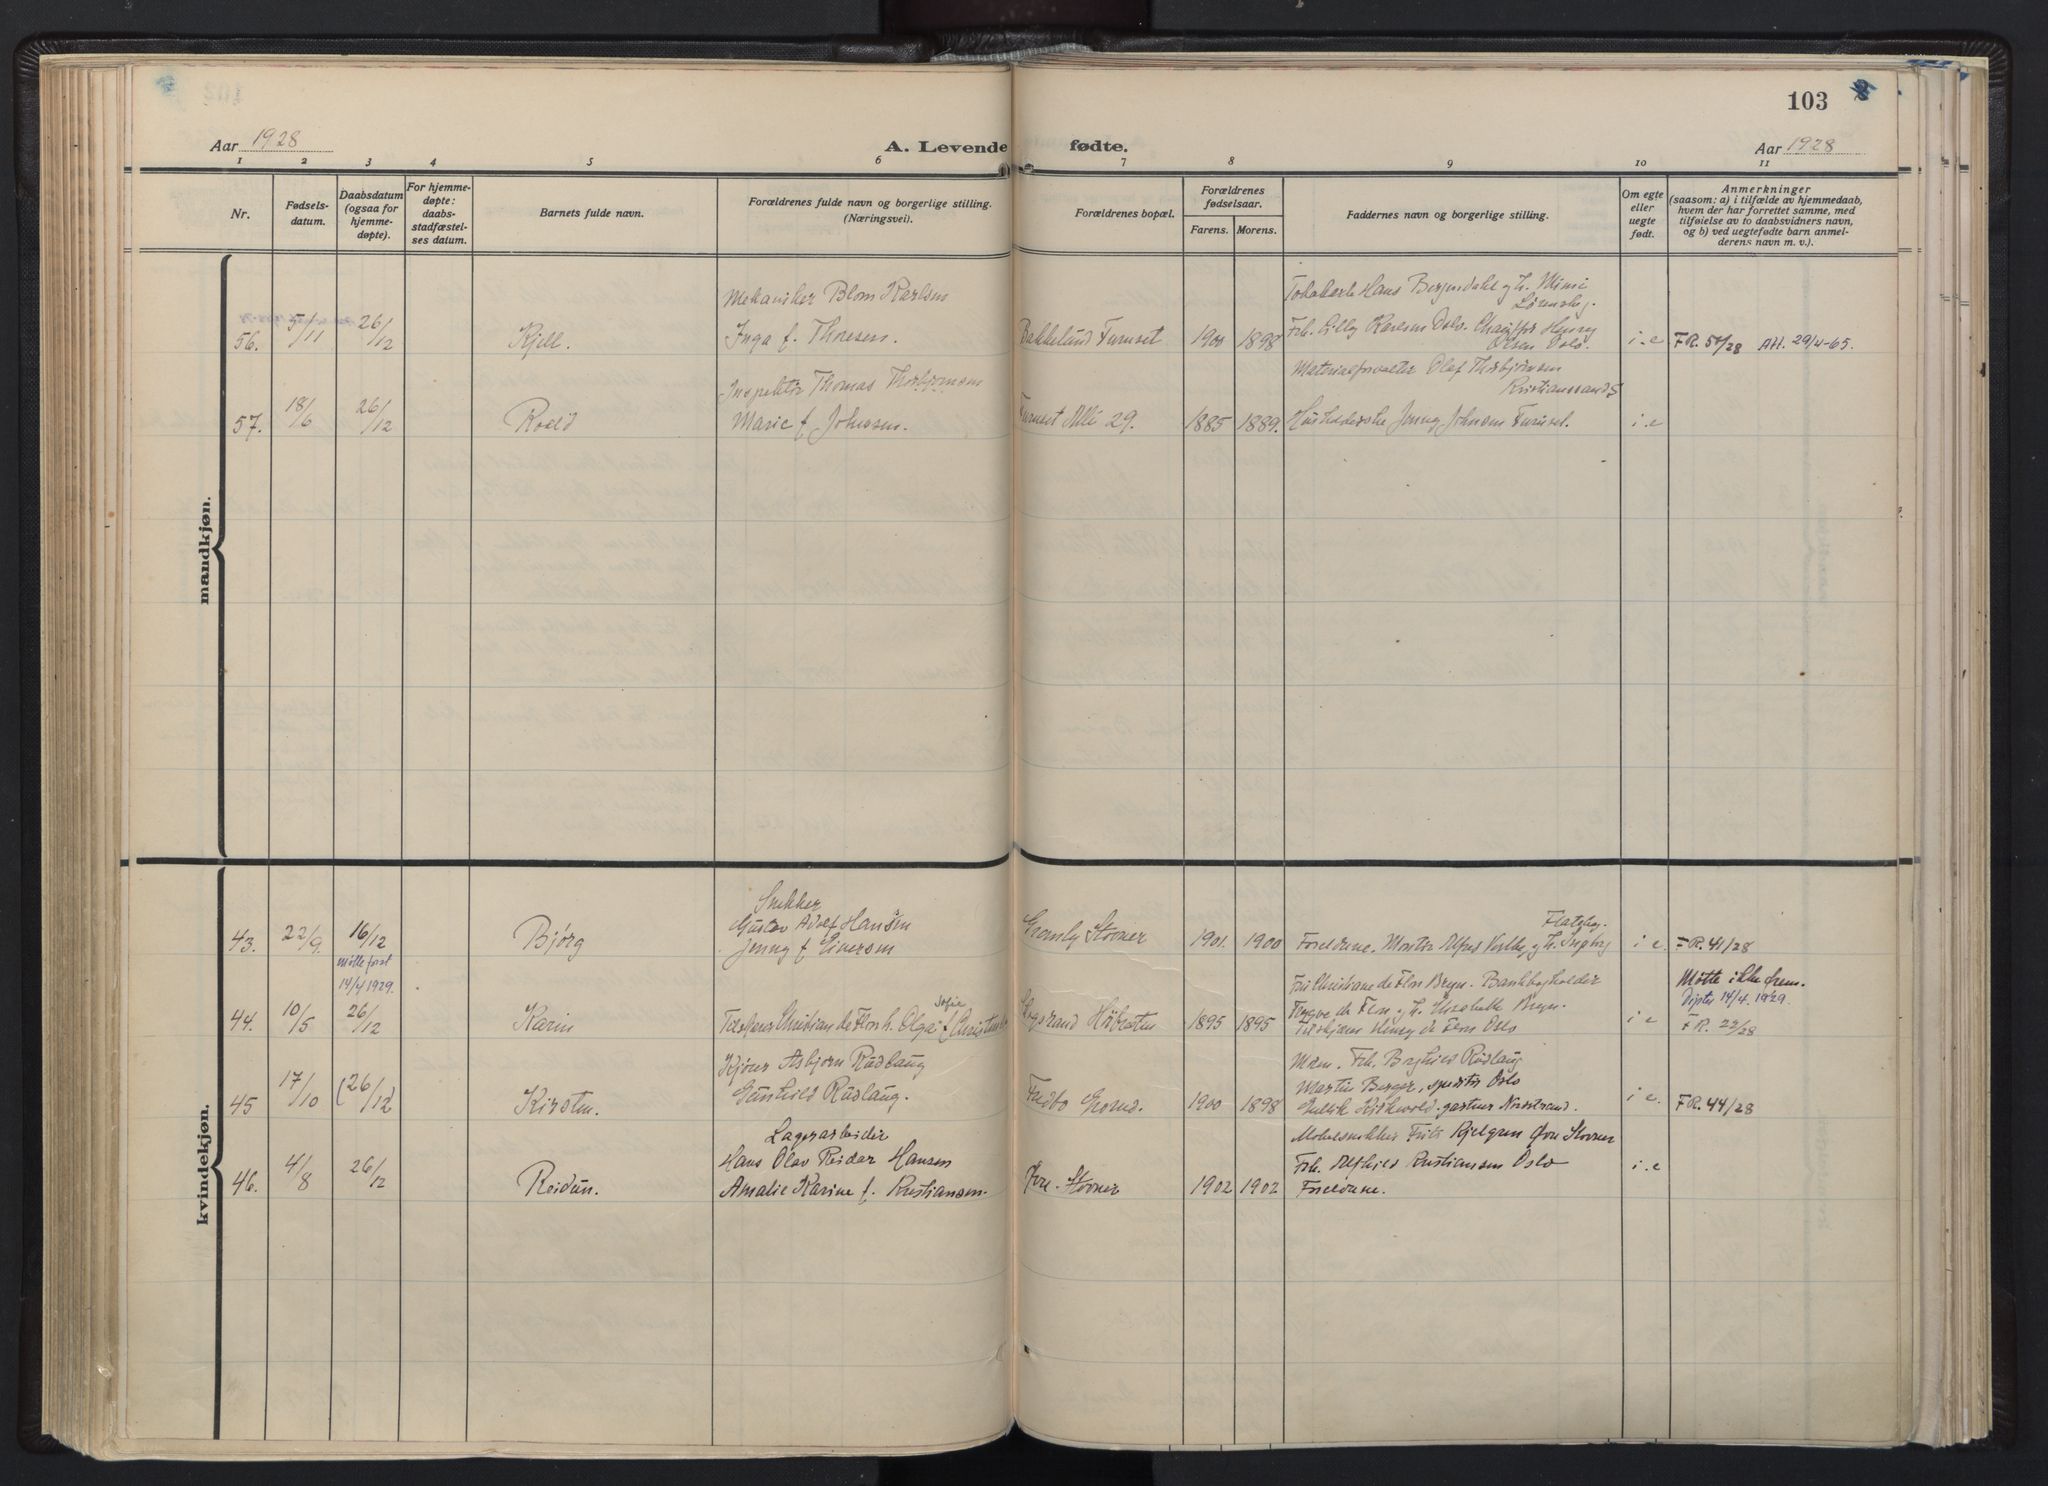 103
Aar 1928
A. Levende fødte.
Aar 1928
1 2 3 4 5 6 7 8 9 10 11
Nr.
Fødsels-
datum.
Daabsdatum
(ogsaa for
hjemme-
døpte).
For hjemme-
døpte:
daabs-
stadfæstel-
ses datum.
Barnets fulde navn.
Forældrenes fulde navn og borgerlige stilling.
(Næringsvei).
Forældrenes bopæl.
Forældrenes
fødselsaar.
Farens. Morens.
Faddernes navn og borgerlige stilling.
Om egte
eller
uegte
født.
Anmerkninger
(saasom: a) i tilfælde av hjemmedaab,
hvem der har forrettet samme, med
tilføielse av to daabsvidners navn,
og b) ved uegtefødte barn anmel-
derens navn m. v.).
mandkjøn.
Mekaniker Blom Karlsen
Hans Bergendahl og h. Mimi
Lørenskog.
56. 5/11 26/12 Kjell. Inga f. Thoresen. Bakkelund Furuset 1900 1898 Frk. Lilly Karlsen Oslo. Chauffør Henry i.e FR. 50/28 Att. 29/4-65.
Olsen Oslo.
Inspektør Thomas Thorbjørnsen
Materialforvalter Olaf Thorbjørnsen
Kristianssand S
57. 18/6 26/12 Roald Marie f. Johnsen. Furuset Allé 29. 1885 1889. Husholderske Jenny Johnsen Furuset. i.e
kvindekjøn.
Snekker
Gustav Adolf Hansen
Flateby.
43. 22/9. 16/12 Bjørg Jenny f Eversen Gransly Stovner 1901. 1900 Foreldrene. Montør Alfred og h. Ingeborg i e. FR. 41/28
Møtte først
14/4 1929.
Fru Christiane de Flon Bryn. Bankbogholder
Møtte ikke frem.
Døpte 14/4. 1929.
44. 10/5 26/12 Karin Christian de Flon h. Olga Sofie f Høibråten 1895 1895 Trygve de Flon og h. Elisabeth Bryn. i e FR. 22/28
Henry de Flon Oslo
Kjører Asbjørn Rudlaug
Moren. Frk. Borghild Rudlaug
Martin Berger, speditør Oslo
45 17/10 (26/12) Kirsten. Gunhild Rudlaug. Fredbo Grorud. 1900 1898 gartner Nordstrand. i e. FR. 44/28
Lagerarbeider
Møbelsnekker Frits Kjelgren Øvre Stovner
Hans Olav Reidar Hansen
Frk. Alfhild Kristiansen Oslo
46. 4/8 26/12 Reidun. Amalie Karine f. Kristiansen. Øvre Stovner 1902 1902 Foreldrene. i.e